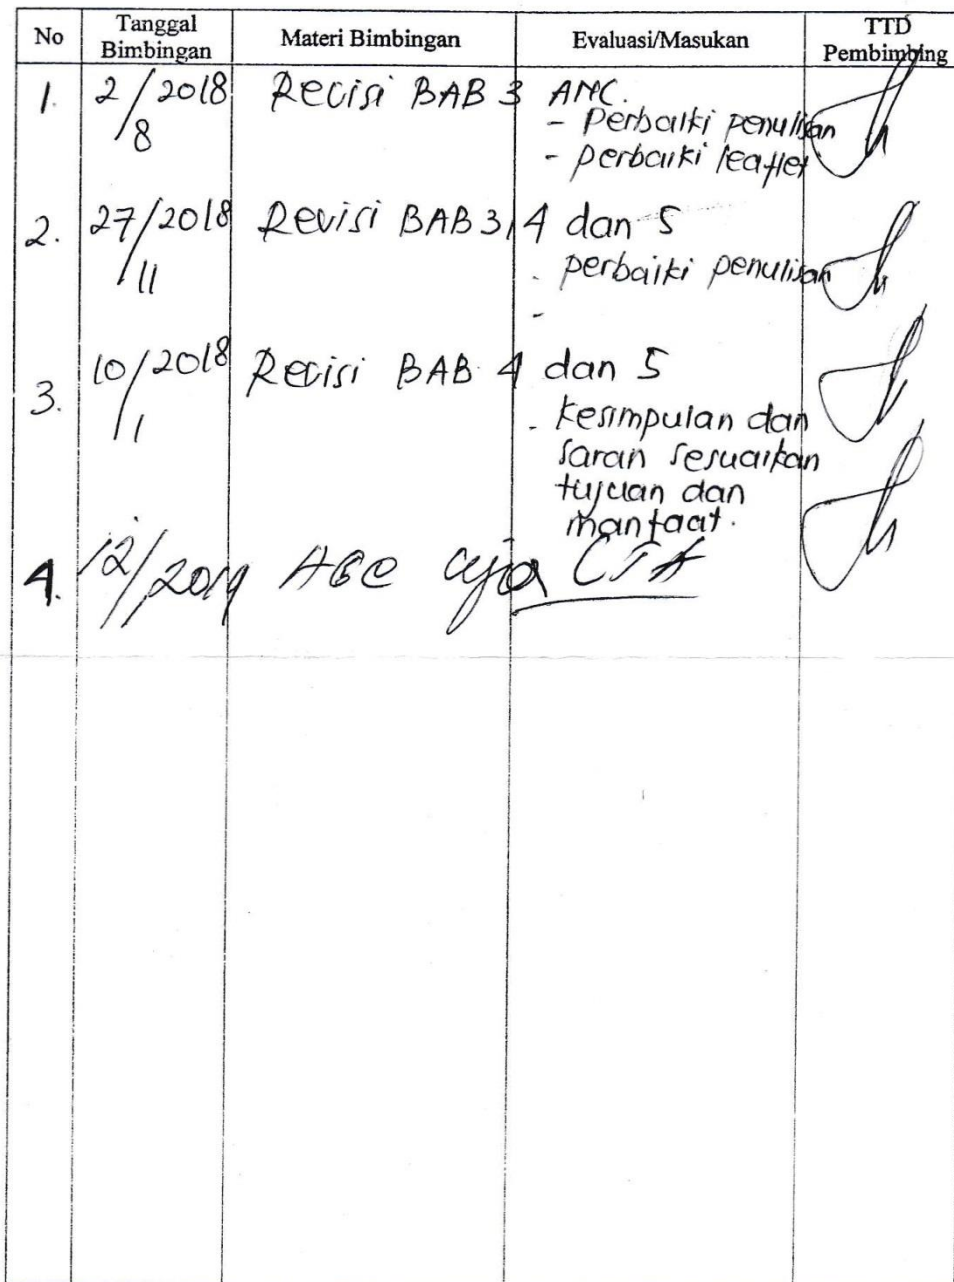 No Tanggal Bimbingan Materi Bimbingan Evaluasi/Masukan TTD Pembimbing
1. 2/8 2018 Revisi BAB 3 ANC.
- Perbaiki penulisan
- perbaiki leaflet
2. 27/11 2018 Revisi BAB 3,4 dan 5
- perbaiki penulisan
-
3. 10/1 2018 Revisi BAB 4 dan 5
- kesimpulan dan
saran sesuaikan
tujuan dan
manfaat.
4. 12/2019